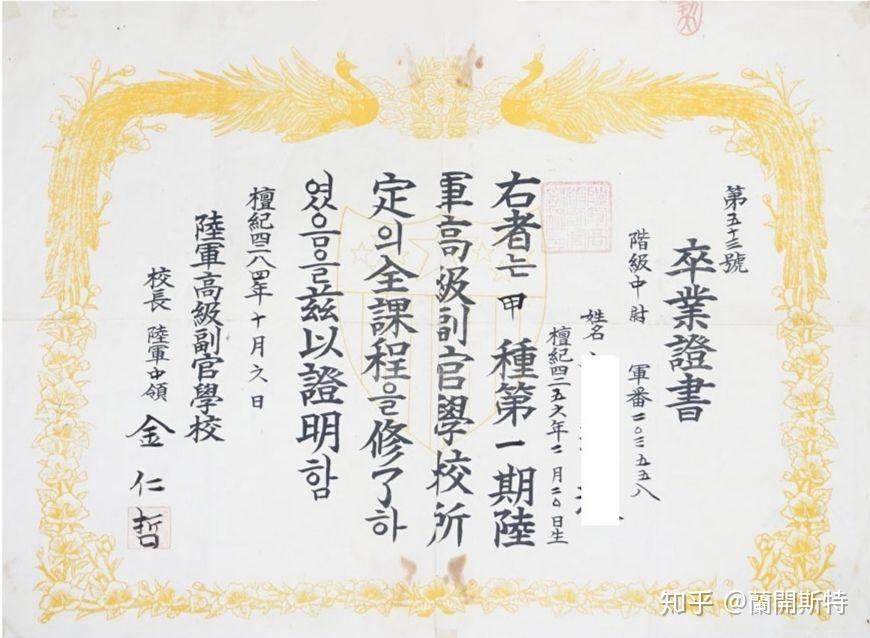 第五十三號
卒業證書
階級 中尉 軍番
姓名
檀紀四二五六年二月二〇日生
右者는 甲 種第一期陸
軍高級副官學校所
定의全課程을修了하
였음을玆以證明함
檀紀四二八四年 十月六日
陸軍高級副官學校
校長 陸軍中領 金仁哲
知乎 @蘭開斯特